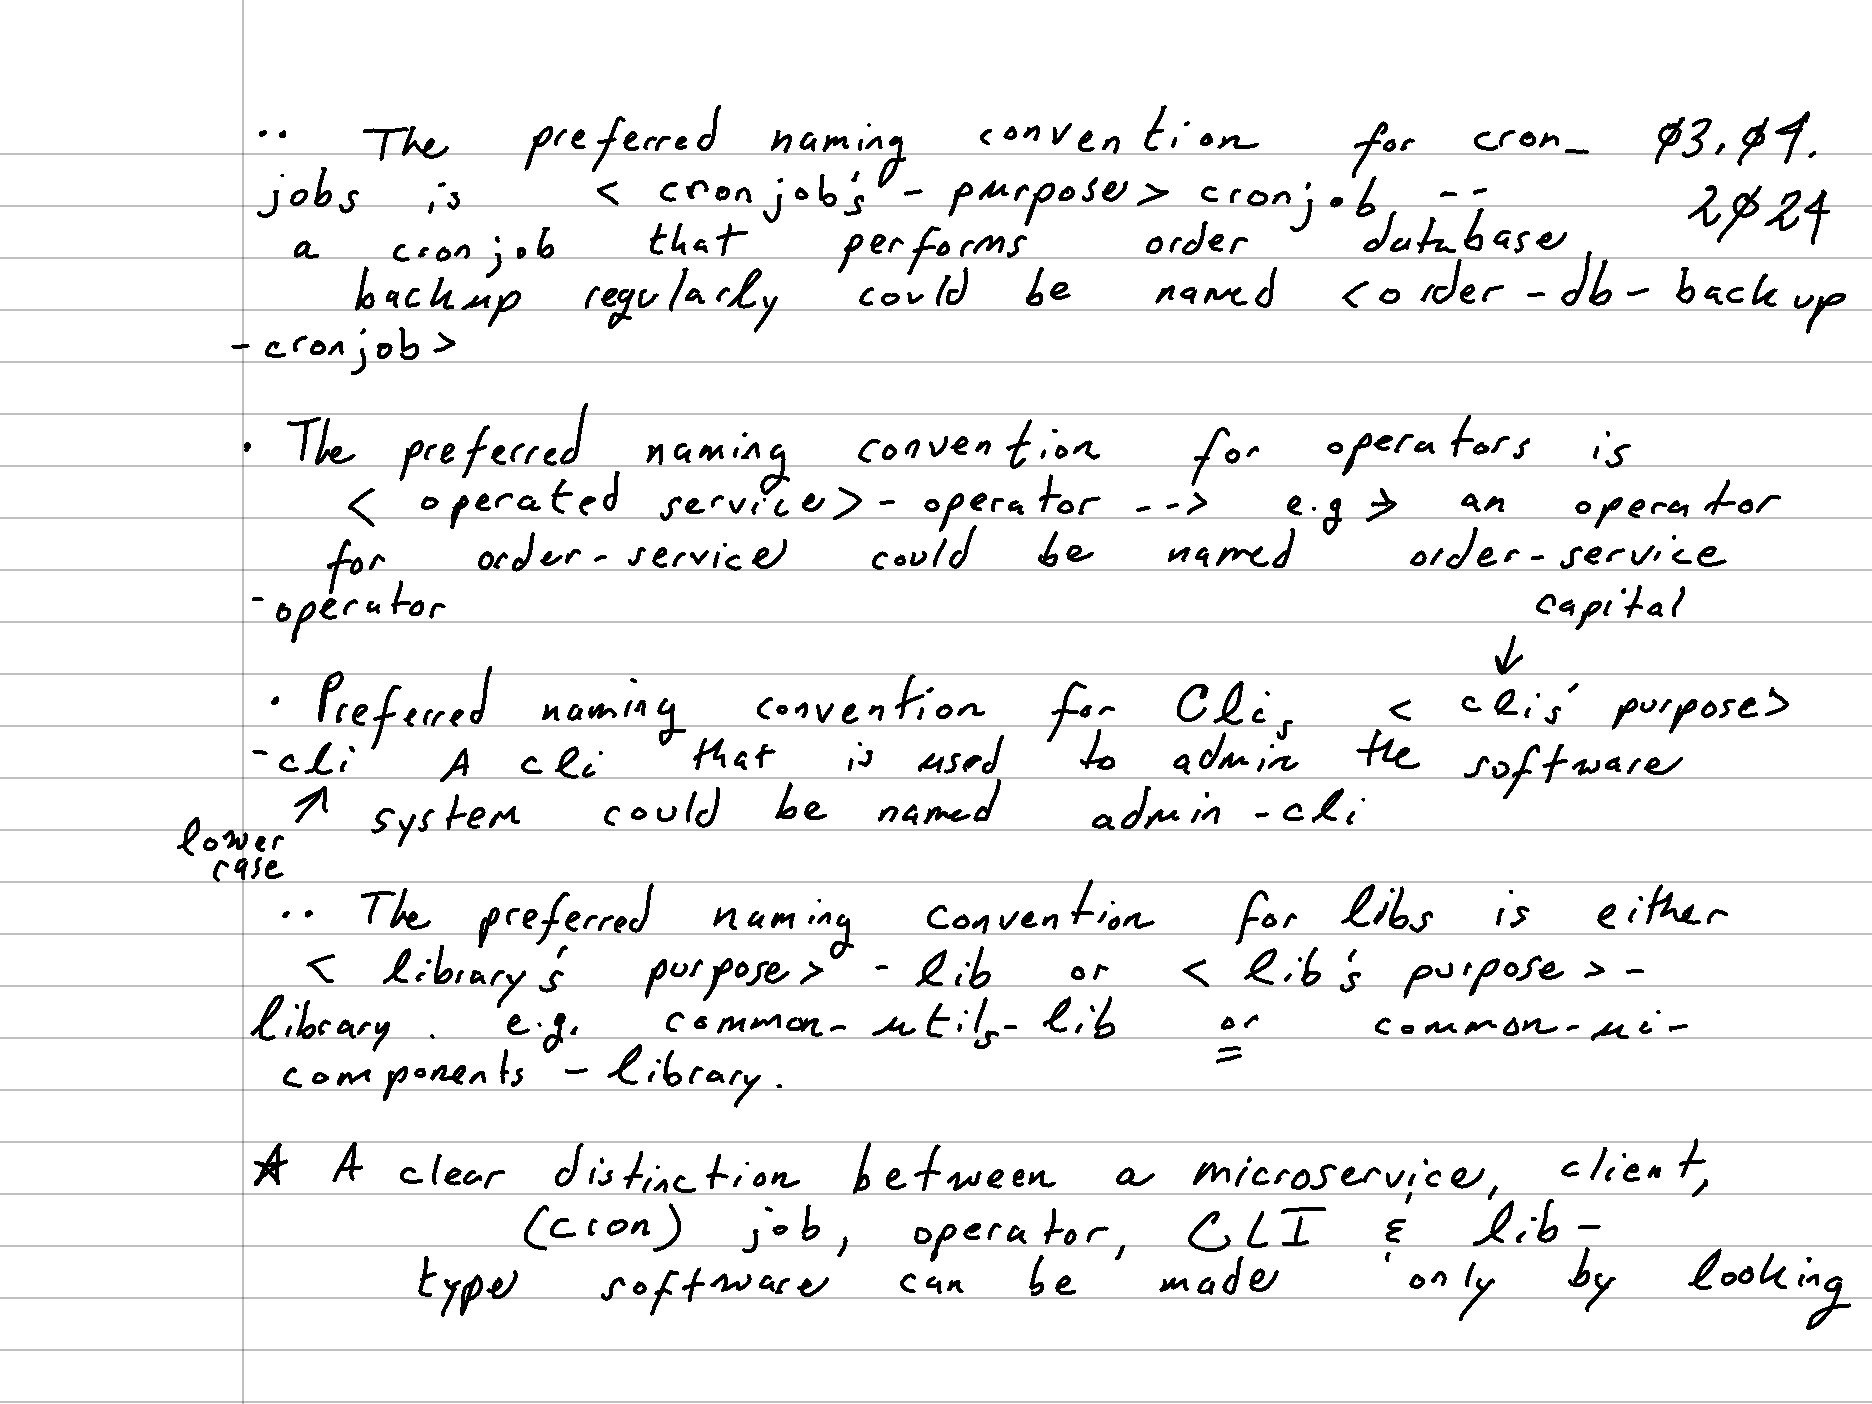 ·· The preferred naming convention for cron_ 03.04.
jobs is < cronjob's - purpose> cronjob -- 2024
a cronjob that performs order database
backup regularly could be named <order-db-backup
-cronjob>
· The preferred naming convention for operators is
< operated service>-operator --> e.g → an operator
for order-service could be named order-service
-operator
capital
↓
· Preferred naming convention for Clis < clis' purpose>
-cli A cli that is used to admin the software
↗ system could be named admin-cli
lower
case
·· The preferred naming convention for libs is either
< library's purpose> -lib or < lib's purpose>-
library. e.g. common-utils-lib or common-ui-
components-library.
☆ A clear distinction between a microservice, client,
(cron) job, operator, CLI & lib-
type software can be made only by looking